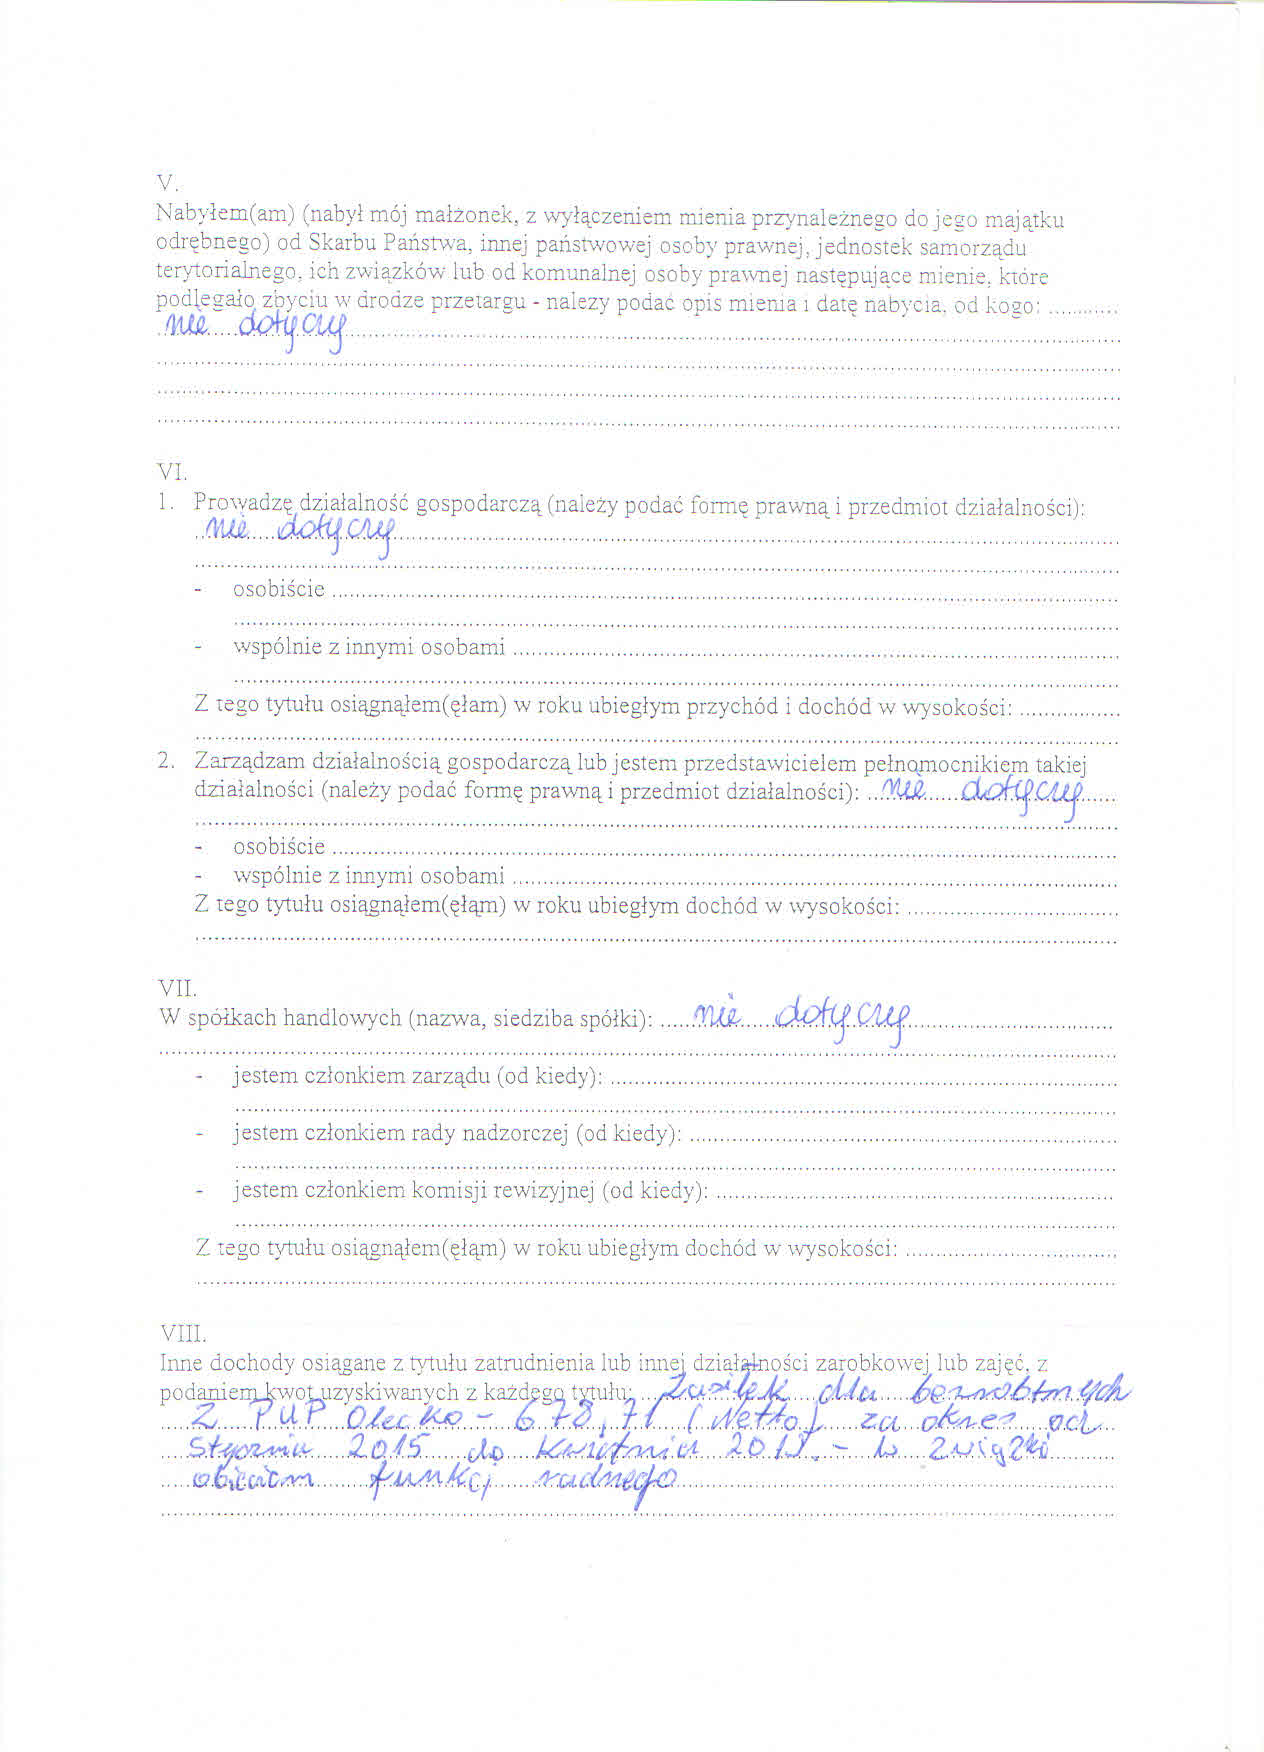 V.
Nabyłem(am) (nabył mój małżonek, z wyłączeniem mienia przynależnego do jego majątku
odrębnego) od Skarbu Państwa, innej państwowej osoby prawnej, jednostek samorządu
terytorialnego, ich związków lub od komunalnej osoby prawnej następujące mienie, które
podlegało zbyciu w drodze przetargu - należy podać opis mienia i datę nabycia, od kogo: ............
nie dotyczy
VI.
1. Prowadzę działalność gospodarczą (należy podać formę prawną i przedmiot działalności):
nie dotyczy
- osobiście
- wspólnie z innymi osobami
Z tego tytułu osiągnąłem(ęłam) w roku ubiegłym przychód i dochód w wysokości:
2. Zarządzam działalnością gospodarczą lub jestem przedstawicielem pełnomocnikiem takiej
działalności (należy podać formę prawną i przedmiot działalności): nie dotyczy
- osobiście
- wspólnie z innymi osobami
Z tego tytułu osiągnąłem(ęłąm) w roku ubiegłym dochód w wysokości:
VII.
W spółkach handlowych (nazwa, siedziba spółki): nie dotyczy
- jestem członkiem zarządu (od kiedy):
- jestem członkiem rady nadzorczej (od kiedy):
- jestem członkiem komisji rewizyjnej (od kiedy):
Z tego tytułu osiągnąłem(ęłąm) w roku ubiegłym dochód w wysokości:
VIII.
Inne dochody osiągane z tytułu zatrudnienia lub innej działalności zarobkowej lub zajęć, z
podaniem kwot uzyskiwanych z każdego tytułu: Zasiłek dla bezrobotnych
z PUP Olecko - 678,71 (Netto) za okres od
stycznia 2015 do kwietnia - w związki
funkcj radnego